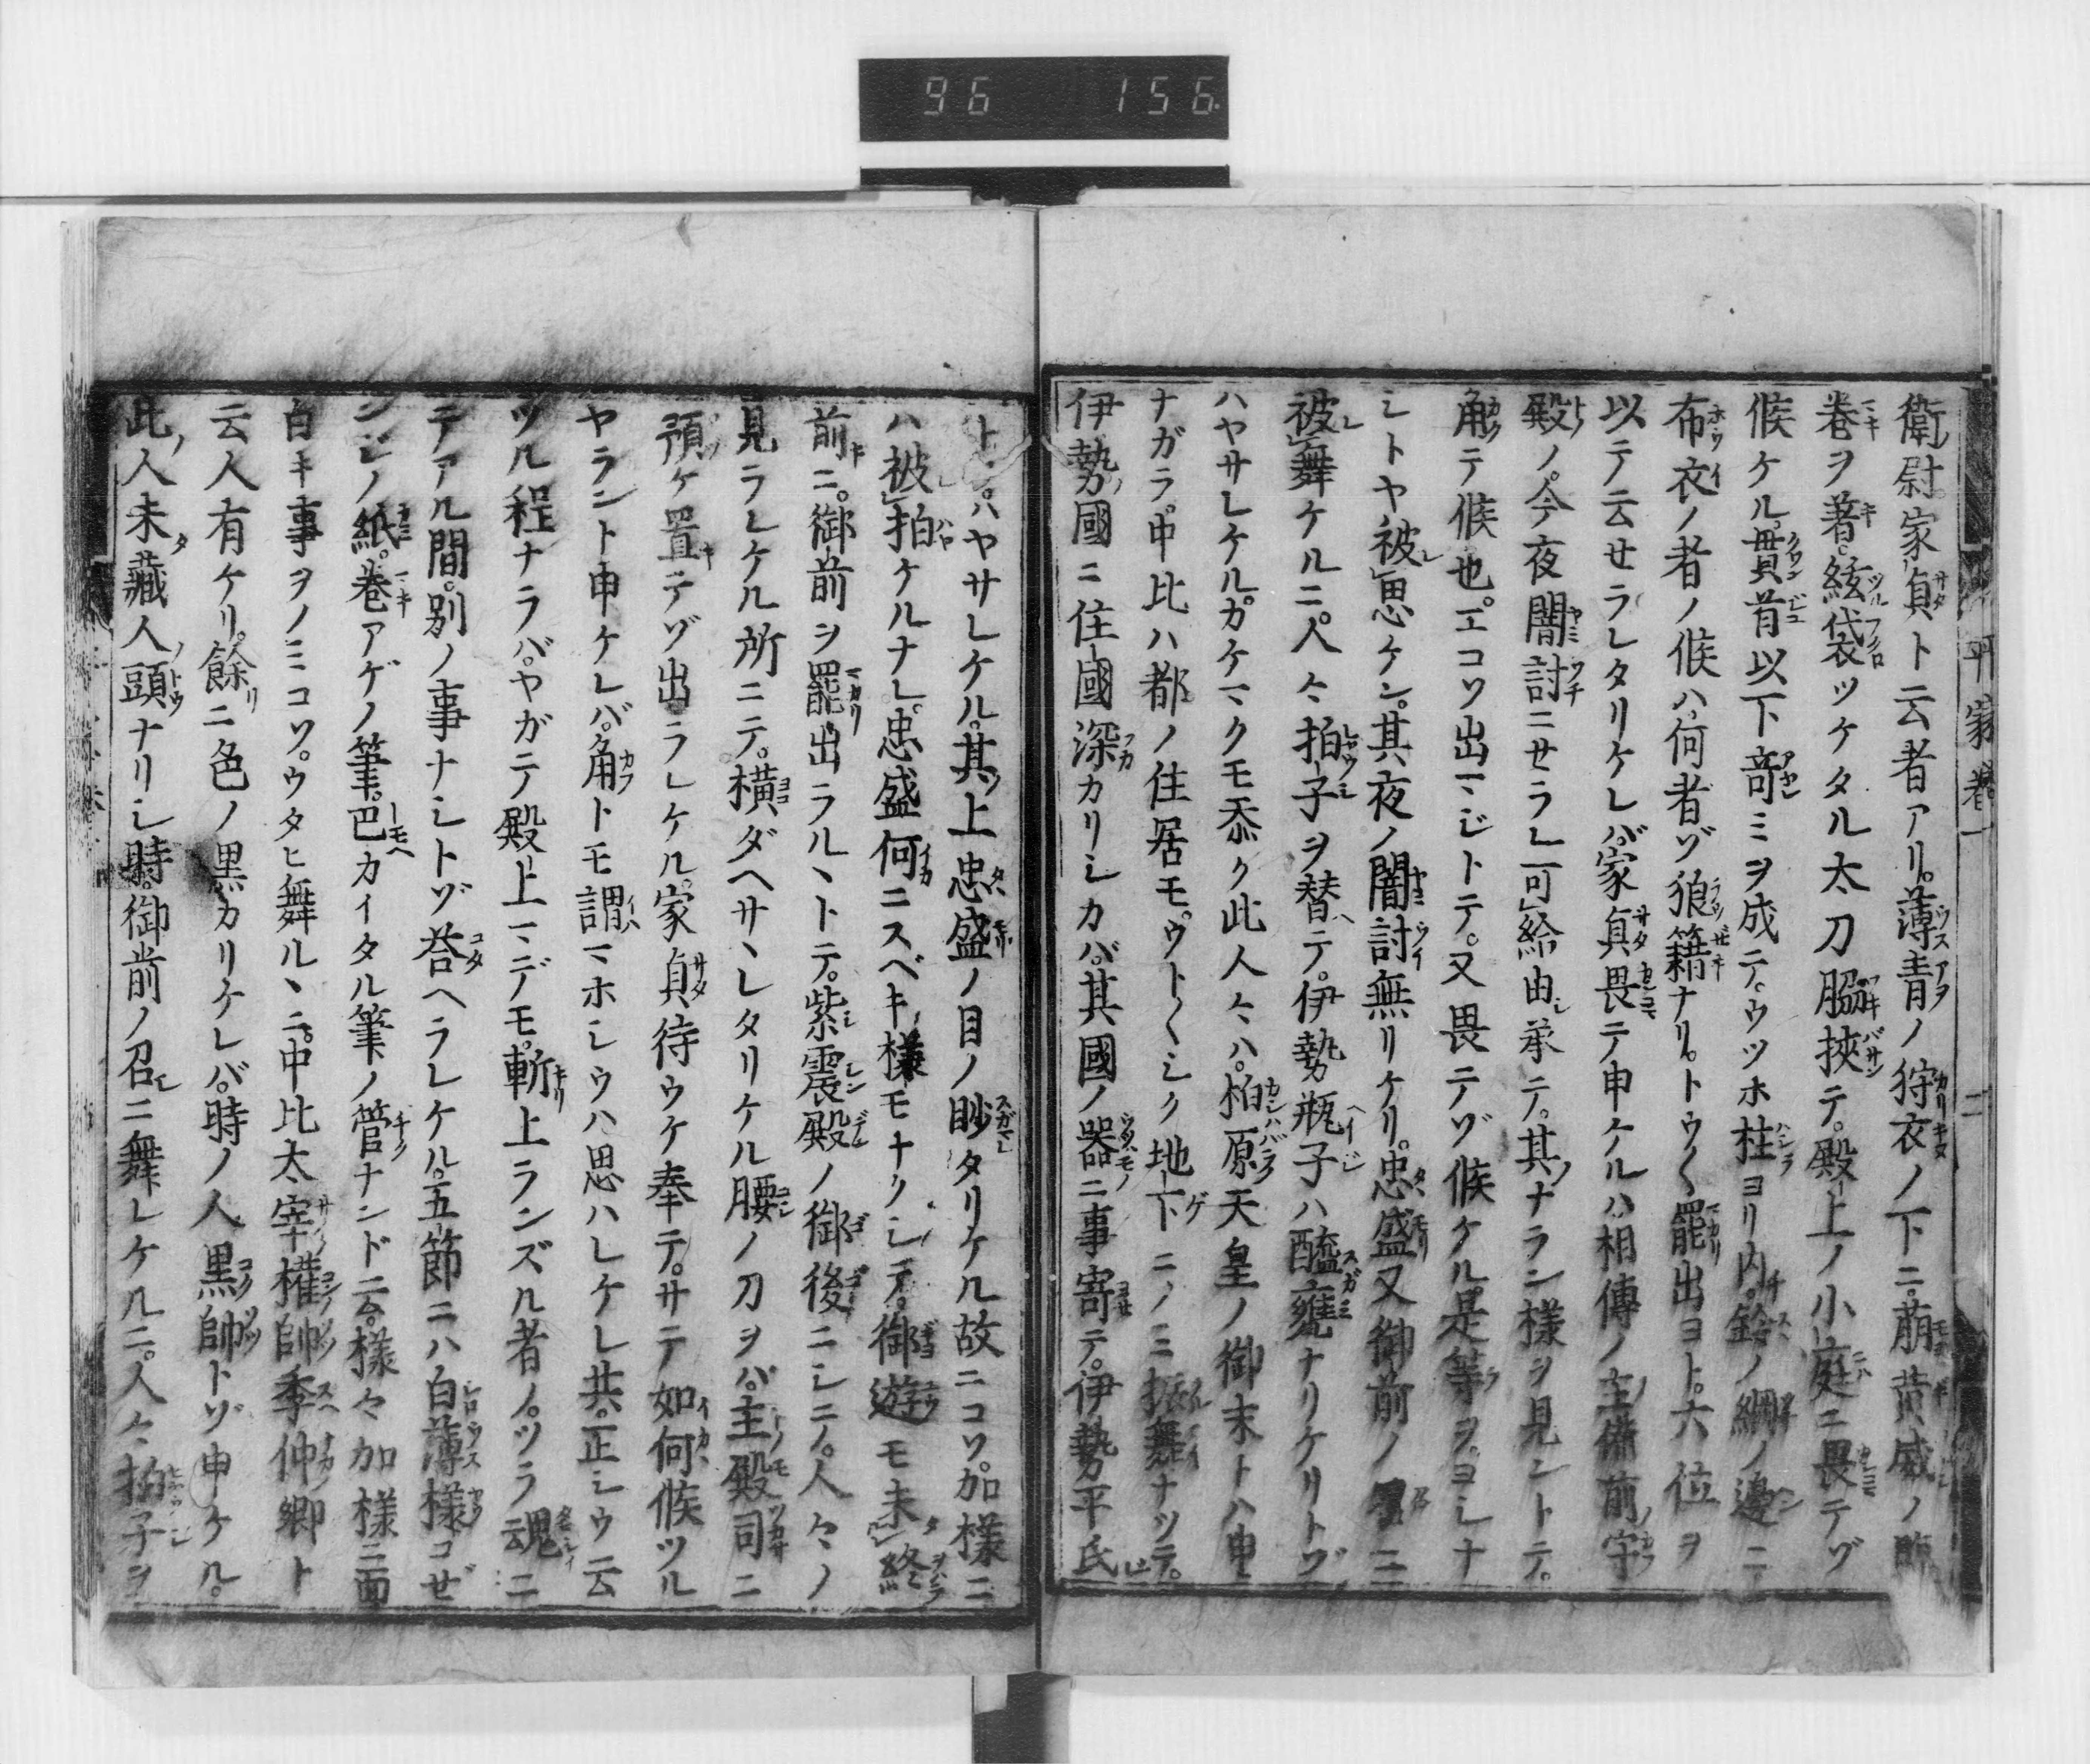 96 156
平家巻一 二
衛尉家貞ト云者アリ。薄青ノ狩衣ノ下ニ。萠黄威ノ
巻ヲ著。絃袋ツケタル太刀脇挾テ。殿上ノ小庭ニ畏テゾ
候ケル。貫首以下竒ミヲ成テ。ウツホ柱ヨリ内。鈴ノ綱ノ邊ニ
布衣ノ者ノ候ハ。何者ゾ狼籍ナリ。トウ〱罷出ヨト。六位ヲ
以テ云セラレタリケレバ。家貞畏テ申ケルハ。相傳ノ主備前守
殿ノ。今夜闇討ニセラレ可給由承テ。其ナラン様ヲ見ントテ。
角テ候也。エコソ出マジトテ。又畏テゾ候ケル。是等ヲ。ヨシナ
シトヤ被思ケン。其夜ノ闇討無リケリ。忠盛又御前ノ召ニ
被舞ケルニ。人々拍子ヲ替テ。伊勢瓶子ハ醯甕ナリケリトゾ
ハヤサレケル。カケマクモ忝ク此人々ハ。柏原天皇ノ御末トハ申
ナガラ。中比ハ都ノ住居モ。ウト〱シク地下ニノミ振舞ナツテ。
伊勢國ニ住國深カリシカバ。其國ノ器ニ事寄テ。伊勢平氏
ト。ハヤサレケル。其上忠盛ノ目ノ眇タリケル故ニコソ。加様ニ
ハ被拍ケルナレ。忠盛何ニスベキ様モナクシテ。御遊モ未終
前ニ。御前ヲ罷出ラルヽトテ。紫震殿ノ御後ニシテ。人々ノ
見ラレケル所ニテ。横ダヘサヽレタリケル腰ノ刀ヲバ。主殿司ニ
預ケ置テゾ出ラレケル。家貞待ウケ奉テ。サテ如何候ツル
ヤラント申ケレバ。角トモ謂マホシウハ思ハレケレ共。正シウ云
ツル程ナラバ。ヤガテ殿上マデモ。斬上ランズル者ノ。ツラ魂ニ
テアル間。別ノ事ナシトゾ荅ヘラレケル。五節ニハ白薄様コゼ
ンジノ紙。巻アゲノ筆。巴カイタル筆ノ管ナンド云。様々加様ニ面
白キ事ヲノミコソ。ウタヒ舞ルヽニ。中比太宰權帥季仲卿ト
云人有ケリ。餘ニ色ノ黒カリケレバ。時ノ人黒帥トゾ申ケル。
此人未藏人頭ナリシ時。御前ノ召ニ舞レケルニ。人々拍子ヲ